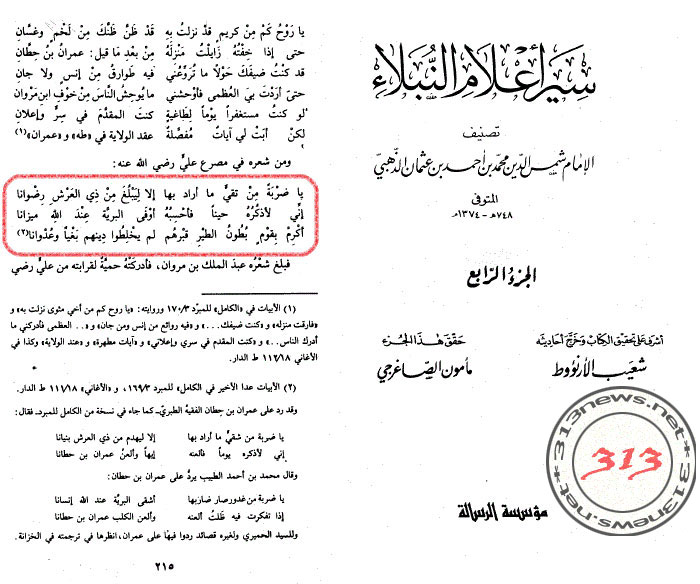 سير أعلام النبلاء
تصنيف
الإمام شمس الدين محمد بن أحمد بن عثمان الذهبي
المتوفى
٧٤٨هـ - ١٣٧٤م
الجزء الرابع
أشرف على تحقيق الكتاب وخرج أحاديثه
شعيب الأرنؤوط
حقق هذا الجزء
مأمون الصاغرجي
مؤسسة الرسالة
313news.net*313news.net*
313
يا رَوْحُ كَمْ مِنْ كريمٍ قدْ نزلتُ بِهِ قَدْ ظَنَّ ظَنَّكَ مِنْ لَخْمٍ وغسَّانِ
حتى إذا خِفْتُهُ زَايَلْتُ مَنْزِلَهُ مِنْ بعدِ مَا قيل: عمرانُ بنُ حِطَّانِ
قد كنتُ ضيفَكَ حَوْلاً ما تُرَوِّعُني فيه طَوارقُ مِنْ إنسٍ ولا جانِ
حتى أردْتَ بيَ العظمى فأوحشَني ما يُوحِشُ الناسَ مِنْ خوْفِ ابن مَرْوانِ
لو كنتُ مستغفراً يوْماً لِطَاغيةٍ كنتَ المقدَّمَ في سِرٍّ وإعلانِ
لكنْ أبَتْ لي آياتٌ مُفصَّلَةٌ عقد الولاية في «طه» و«عمران»(١)
ومن شعره في مصرع عليٍّ رضي الله عنه:
يا ضَرْبَةً مِنْ تقيٍّ ما أراد بها إلا لِيَبْلُغَ مِنْ ذِي العَرْشِ رِضْوانا
إنِّي لأذكرُهُ حيناً فأحْسِبُهُ أوْفَى البريَّةِ عِنْدَ اللّهِ ميزانا
أكْرِمْ بِقَوْمٍ بُطُونُ الطَيْرِ قَبْرُهُم لم يخلِطُوا دينهم بَغْياً وعُدْوانا(٢)
فبلغ شعْرُه عبدَ الملك بن مروان، فأدركتْهُ حميَّةٌ لقرابته من عليٍّ رضي
(١) الأبيات في «الكامل» للمبرّد ١٧٠/٣ وروايته: «يا روح كم من أخي مثوى نزلت به» و
«فارقت منزله» و«كنت ضيفك...» و«فيه روائع من إنس ومن جان» و«.. العظمى فأدركني ما
أدرك الناس..» و«كنت المقدم في سري وإعلاني» و«آيات مطهرة» و«عند الولاية» وكذا في
الأغاني ١١٢/١٨ ط الدار.
(٢) الأبيات عدا الأخير في الكامل» للمبرد ١٦٩/٣، و«الأغاني» ١١١/١٨ ط الدار.
وقد رد على عمران بن حِطان الفقيهُ الطبريّ ـ كما جاء في نسخة من الكامل للمبرد ـ فقال:
يا ضربة من شقيٍّ ما أراد بها إلا ليهدم من ذي العرش بنيانا
إني لأذكره يوماً فألعنه إيهاً وألعنُ عمران بن حطانا
وقال محمد بن أحمد الطبيب يردُّ على عمران بن حطان:
يا ضربة من غدور صار ضاربها أشقى البريَّة عند الله إنسانا
إذا تفكرت فيه ظَلْتُ ألعنه وألعن الكلب عمران بن حطانا
وللسيد الحميري ولغيره قصائد ردوا فيها على عمران، انظرها في ترجمته في الخزانة.
٢١٥